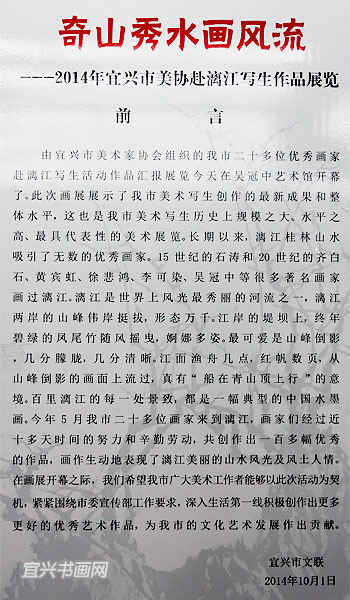 奇山秀水画风流
———2014年宜兴市美协赴漓江写生作品展览
前 言
由宜兴市美术家协会组织的我市二十多位优秀画家
赴漓江写生活动作品汇报展览今天在吴冠中艺术馆开幕
了。此次画展展示了我市美术写生创作的最新成果和整
体水平，这也是我市美术写生历史上规模之大、水平之
高、最具代表性的美术展览。长期以来，漓江桂林山水
吸引了无数的优秀画家。15世纪的石涛和20世纪的齐白
石、黄宾虹、徐悲鸿、李可染、吴冠中等很多著名画家
画过漓江。漓江是世界上风光最秀丽的河流之一，漓江
两岸的山峰伟岸挺拔，形态万千。江岸的堤坝上，终年
碧绿的凤尾竹随风摇曳，婀娜多姿。最可爱是山峰倒影
，几分朦胧，几分清晰。江面渔舟几点，红帆数页，从
山峰倒影的画面上流过，真有“船在青山顶上行”的意
境。百里漓江的每一处景致，都是一幅典型的中国水墨
画。今年5月我市二十多位画家来到漓江，画家们经过近
十多天时间的努力和辛勤劳动，共创作出一百多幅优秀
的作品，画作生动地表现了漓江美丽的山水风光及风上人情。
在画展开幕之际，我们希望我市广大美术工作者能够以此次活动为契
机，紧紧围绕市委宣传部工作要求，深入生活第一线积极创作出更多
更好的优秀艺术作品，为我市的文化艺术发展作出贡献。
宜兴市文联
2014年10月1日
宜兴书画网